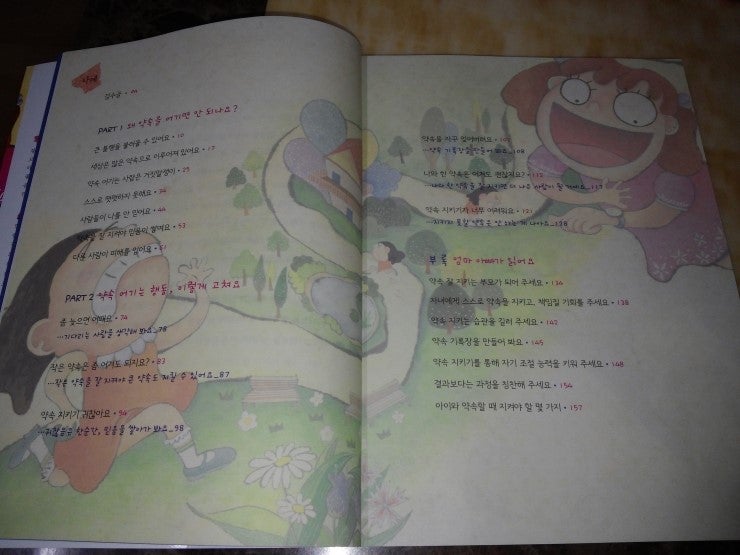 차례
감수글 •
PART 1 왜 약속을 어기면 안 되나요?
큰 불행을 불러올 수 있어요 • 10
세상은 많은 약속으로 이루어져 있어요 • 17
약속 어기는 사람은 거짓말쟁이 • 25
스스로 떳떳하지 못해요 • 34
사람들이 나를 안 믿어요 • 44
약속을 잘 지켜야 믿음이 쌓여요 • 53
다른 사람이 피해를 입어요 • 61
PART 2 약속 어기는 행동, 이렇게 고쳐요
좀 늦으면 어때요 • 74
…기다리는 사람을 생각해 봐요_78
작은 약속은 좀 어겨도 되지요? • 83
…작은 약속을 잘 지켜야 큰 약속도 지킬 수 있어요_87
약속 지키기 귀찮아요 • 94
…귀찮음은 한순간, 믿음을 쌓아가 봐요_98
약속을 자꾸 잊어버려요 • 103
…약속 기록장을 만들어 봐요_108
나와 한 약속은 어겨도 괜찮지요? • 112
…나와 한 약속을 잘 지키면 더 나은 사람이 될 거예요_117
약속 지키기가 너무 어려워요 • 121
부록 엄마 아빠가 읽어요
약속 잘 지키는 부모가 되어 주세요 • 136
자녀에게 스스로 약속을 지키고, 책임질 기회를 주세요 • 138
약속 지키는 습관을 길러 주세요 • 142
약속 기록장을 만들어 봐요 • 145
약속 지키기를 통해 자기 조절 능력을 키워 주세요 • 148
결과보다는 과정을 칭찬해 주세요 • 154
아이와 약속할 때 지켜야 할 몇 가지 • 157